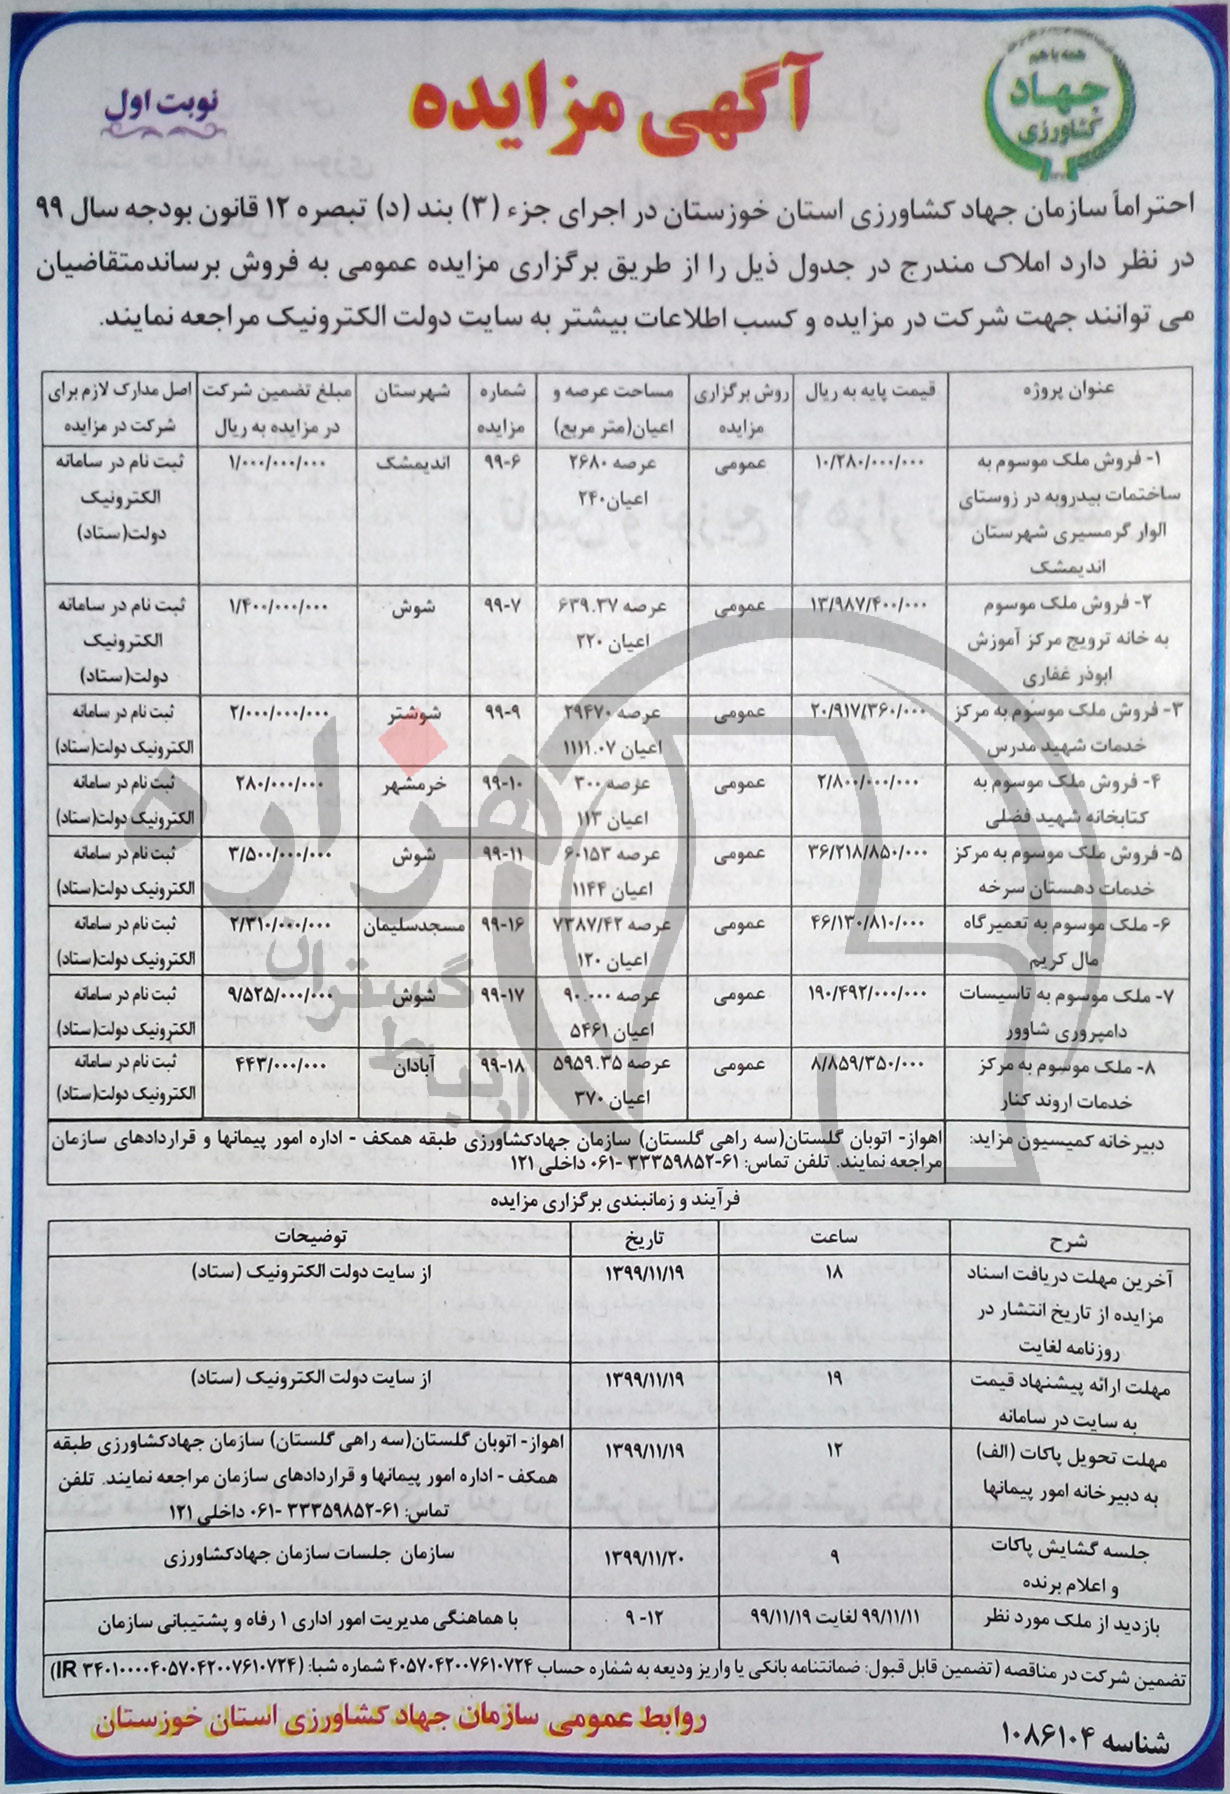 همه با هم
جهاد
کشاورزی
آگهی مزایده
نوبت اول
احتراماً سازمان جهاد کشاورزی استان خوزستان در اجرای جزء (۳) بند (د) تبصره ۱۲ قانون بودجه سال ۹۹
در نظر دارد املاک مندرج در جدول ذیل را از طریق برگزاری مزایده عمومی به فروش برساندمتقاضیان
می توانند جهت شرکت در مزایده و کسب اطلاعات بیشتر به سایت دولت الکترونیک مراجعه نمایند.
عنوان پروژه قیمت پایه به ریال روش برگزاری مساحت عرصه و شماره شهرستان مبلغ تضمین شرکت اصل مدارک لازم برای
مزایده اعیان(متر مربع) مزایده در مزایده به ریال شرکت در مزایده
۱- فروش ملک موسوم به ۱۰/۲۸۰/۰۰۰/۰۰۰ عمومی عرصه ۲۶۸۰ ۹۹-۶ اندیمشک ۱/۰۰۰/۰۰۰/۰۰۰ ثبت نام در سامانه
ساختمات بیدروبه در زوستای اعیان۲۴۰ الکترونیک
الوار گرمسیری شهرستان دولت(ستاد)
اندیمشک
۲- فروش ملک موسوم ۱۳/۹۸۷/۴۰۰/۰۰۰ عمومی عرصه ۶۳۹.۳۷ ۹۹-۷ شوش ۱/۴۰۰/۰۰۰/۰۰۰ ثبت نام در سامانه
به خانه ترویج مرکز آموزش اعیان ۲۲۰ الکترونیک
ابوذر غفاری دولت(ستاد)
۳- فروش ملک موسوم به مرکز ۲۰/۹۱۷/۳۶۰/۰۰۰ عمومی عرصه ۲۹۴۷۰ ۹۹-۹ شوشتر ۲/۰۰۰/۰۰۰/۰۰۰ ثبت نام در سامانه
خدمات شهید مدرس اعیان ۱۱۱۱.۰۷ الکترونیک دولت(ستاد)
۴- فروش ملک موسوم به ۲/۸۰۰/۰۰۰/۰۰۰ عمومی عرصه ۳۰۰ ۹۹-۱۰ خرمشهر ۲۸۰/۰۰۰/۰۰۰ ثبت نام در سامانه
کتابخانه شهید فضلی اعیان ۱۱۳ الکترونیک دولت(ستاد)
۵- فروش ملک موسوم به مرکز ۳۶/۲۱۸/۸۵۰/۰۰۰ عمومی عرصه ۶۰۱۵۳ ۹۹-۱۱ شوش ۳/۵۰۰/۰۰۰/۰۰۰ ثبت نام در سامانه
خدمات دهستان سرخه اعیان ۱۱۴۴ الکترونیک دولت(ستاد)
۶- ملک موسوم به تعمیرگاه ۴۶/۱۳۰/۸۱۰/۰۰۰ عمومی عرصه ۷۳۸۷/۴۲ ۹۹-۱۶ مسجدسلیمان ۲/۳۱۰/۰۰۰/۰۰۰ ثبت نام در سامانه
مال کریم اعیان ۱۲۰ الکترونیک دولت(ستاد)
۷- ملک موسوم به تاسیسات ۱۹۰/۴۹۲/۰۰۰/۰۰۰ عمومی عرصه ۹۰.۰۰۰ ۹۹-۱۷ شوش ۹/۵۲۵/۰۰۰/۰۰۰ ثبت نام در سامانه
دامپروری شاوور اعیان ۵۴۶۱ الکترونیک دولت(ستاد)
۸- ملک موسوم به مرکز ۸/۸۵۹/۳۵۰/۰۰۰ عمومی عرصه ۵۹۵۹.۳۵ ۹۹-۱۸ آبادان ۴۴۳/۰۰۰/۰۰۰ ثبت نام در سامانه
خدمات اروند کنار اعیان ۳۷۰ الکترونیک دولت(ستاد)
دبیرخانه کمیسیون مزاید: اهواز- اتوبان گلستان(سه راهی گلستان) سازمان جهادکشاورزی طبقه همکف - اداره امور پیمانها و قراردادهای سازمان
مراجعه نمایند. تلفن تماس: ۶۱-۳۳۳۵۹۸۵۲ -۰۶۱ داخلی ۱۲۱
فرآیند و زمانبندی برگزاری مزایده
شرح ساعت تاریخ توضیحات
آخرین مهلت دریافت اسناد ۱۸ ۱۳۹۹/۱۱/۱۹ از سایت دولت الکترونیک (ستاد)
مزایده از تاریخ انتشار در
روزنامه لغایت
مهلت ارائه پیشنهاد قیمت ۱۹ ۱۳۹۹/۱۱/۱۹ از سایت دولت الکترونیک (ستاد)
به سایت در سامانه
مهلت تحویل پاکات (الف) ۱۲ ۱۳۹۹/۱۱/۱۹ اهواز- اتوبان گلستان(سه راهی گلستان) سازمان جهادکشاورزی طبقه
به دبیرخانه امور پیمانها همکف - اداره امور پیمانها و قراردادهای سازمان مراجعه نمایند. تلفن
تماس: ۶۱-۳۳۳۵۹۸۵۲ -۰۶۱ داخلی ۱۲۱
جلسه گشایش پاکات ۹ ۱۳۹۹/۱۱/۲۰ سازمان جلسات سازمان جهادکشاورزی
و اعلام برنده
بازدید از ملک مورد نظر ۹۹/۱۱/۱۱ لغایت ۹۹/۱۱/۱۹ ۱۲- ۹ با هماهنگی مدیریت امور اداری ۱ رفاه و پشتیبانی سازمان
تضمین شرکت در مناقصه (تضمین قابل قبول: ضمانتنامه بانکی یا واریز ودیعه به شماره حساب ۴۰۵۷۰۴۲۰۰۷۶۱۰۷۲۴ شماره شبا: (IR ۳۴۰۱۰۰۰۰۴۰۵۷۰۴۲۰۰۷۶۱۰۷۲۴)
روابط عمومی سازمان جهاد کشاورزی استان خوزستان
شناسه ۱۰۸۶۱۰۴
هزاره
ارتباط گستران